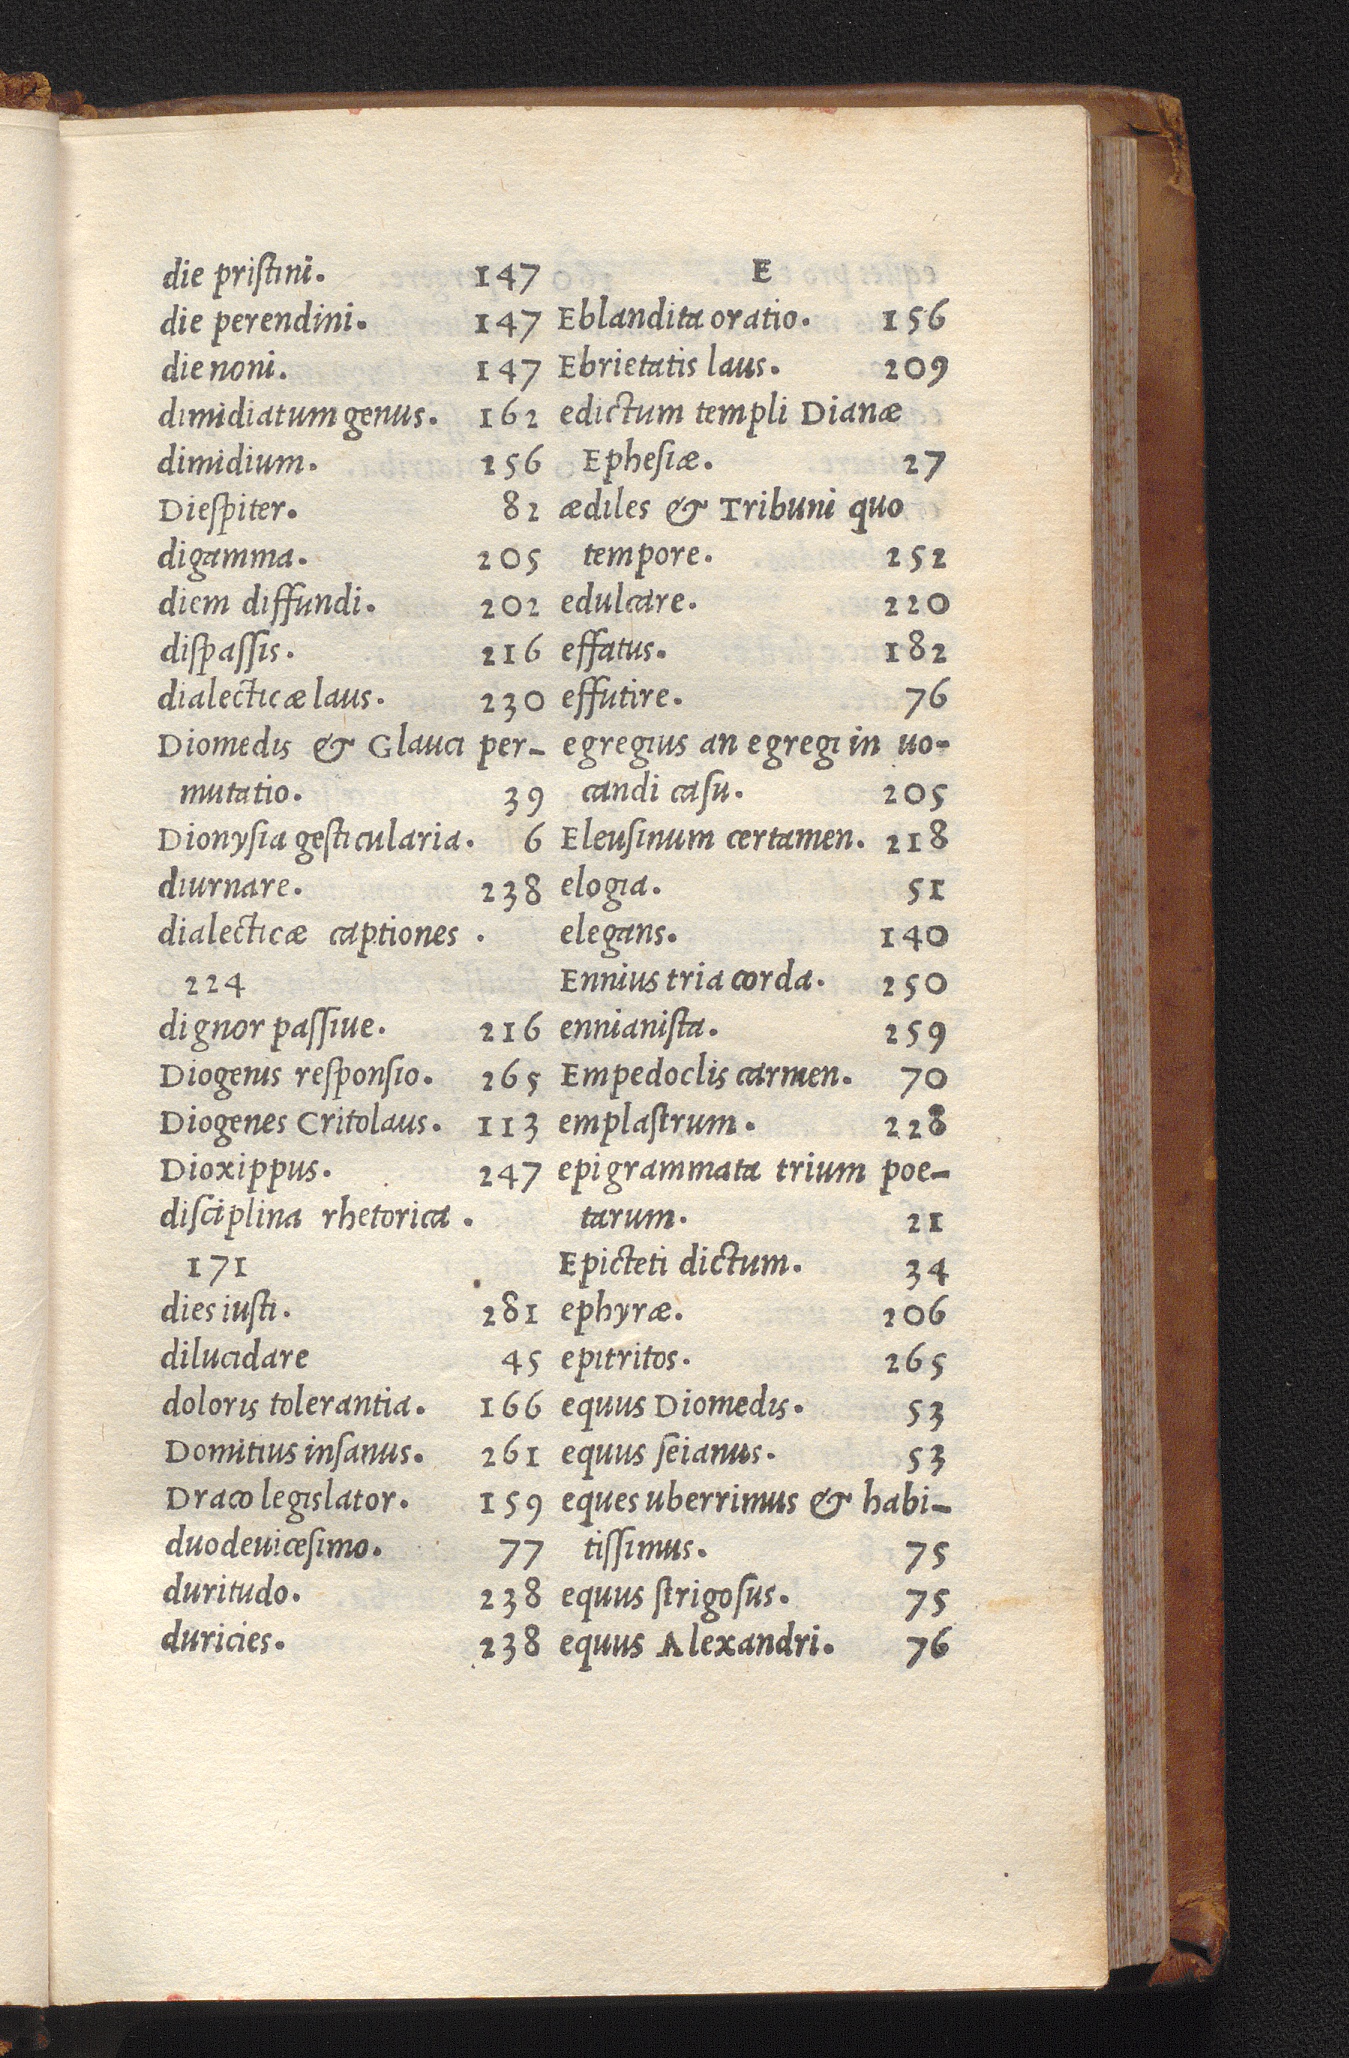 die pristini. 147
die perendini. 147
die noni. 147
dimidiatum genus. 162
dimidium. 256
Diespiter. 82
digamma. 205
diem diffundi. 202
dispassis. 216
dialecticæ laus. 230
Diomedis & Glauci per-
mutatio. 39
Dionysia gesticularia. 6
diurnare. 238
dialecticæ captiones .
224
dignor passiue. 216
Diogenis responsio. 265
Diogenes Critolaus. 113
Dioxippus. 247
disciplina rhetorica .
171
dies iusti. 281
dilucidare 45
doloris tolerantia. 166
Domitius insanus. 261
Draco legislator. 159
duodeuicesimo. 77
duritudo. 238
duricies. 238
E
Eblandita oratio. 156
Ebrietatis laus. 209
edictum templi Dianæ
Ephesiæ. 27
ædiles & Tribuni quo
tempore. 252
edulcare. 220
effatus. 182
effutire. 76
egregius an egregi in uo-
candi casu. 205
Eleusinum certamen. 218
elogia. 51
elegans. 140
Ennius tria corda. 250
ennianista. 259
Empedoclis carmen. 70
emplastrum. 228
epigrammata trium poe-
tarum. 21
Epicteti dictum. 34
ephyræ. 206
epitritos. 265
equus Diomedis. 53
equus seianus. 53
eques uberrimus & habi-
tissimus. 75
equus strigosus. 75
equus Alexandri. 76